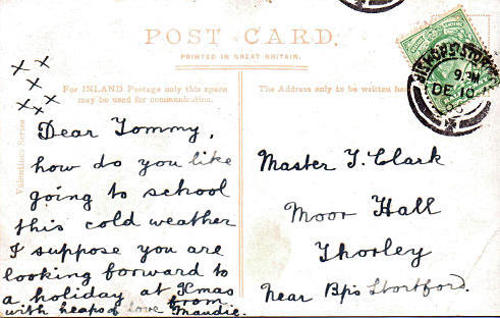 POST CARD.
PRINTED IN GREAT BRITAIN.
For INLAND Postage only this space
may be used for communication.
The Address only to be written here
Valentine's Series
x x
x
x x
x
Dear Tommy,
how do you like
going to school
this cold weather
I suppose you are
looking forward to
a holiday at Xmas
with heaps of love from
Maudie.
Master T. Clark
Moor Hall
Thorley
Near Bp's Stortford.
BISHOPS STORTFORD
9 PM
DE 10